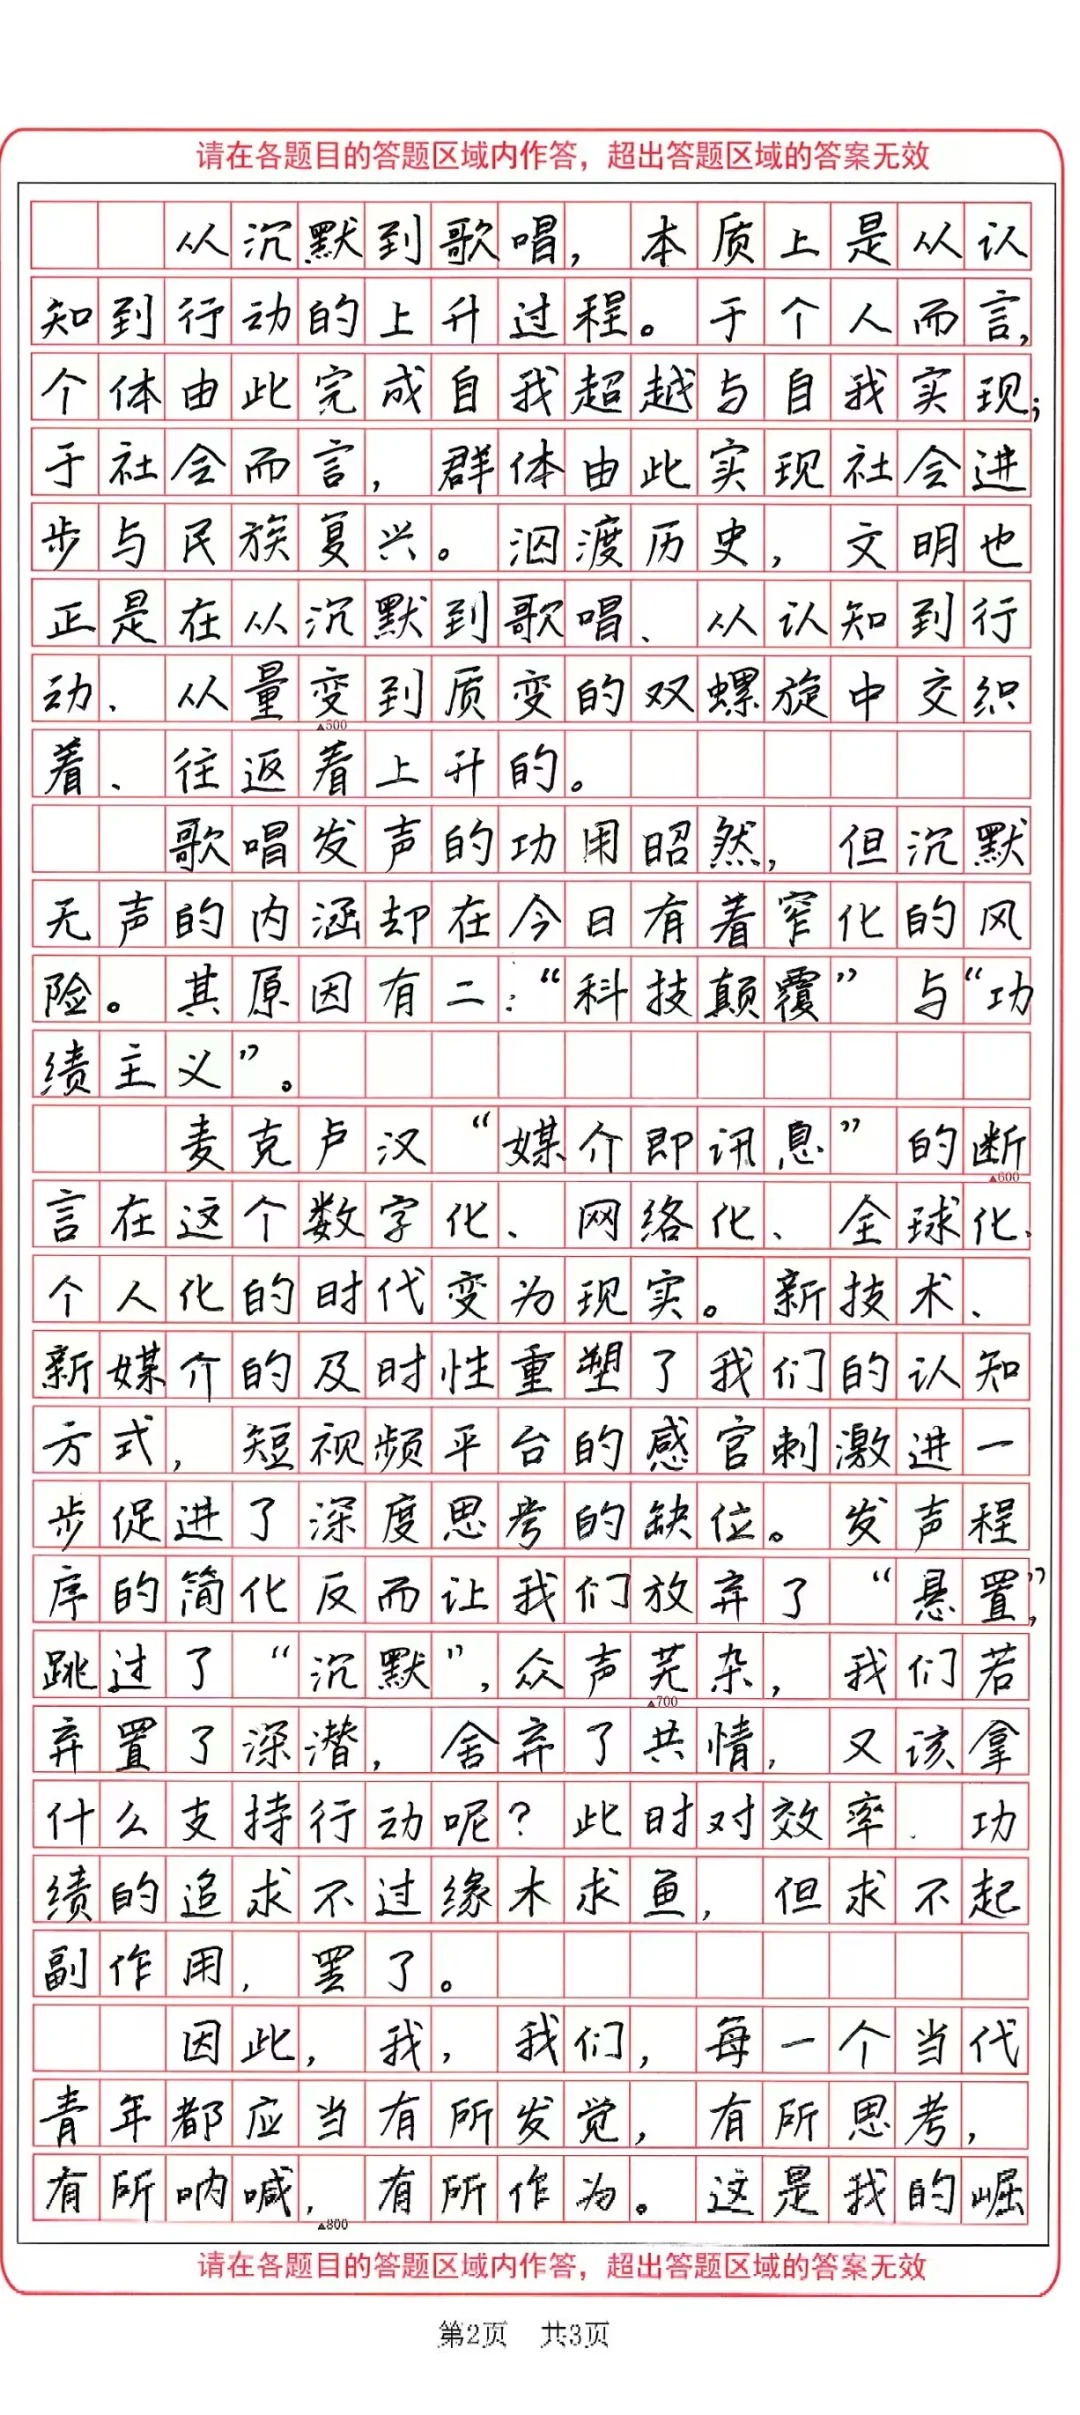 请在各题目的答题区域内作答，超出答题区域的答案无效
从沉默到歌唱，本质上是从认
知到行动的上升过程。于个人而言，
个体由此完成自我超越与自我实现；
于社会而言，群体由此实现社会进
步与民族复兴。泅渡历史，文明也
正是在从沉默到歌唱、从认知到行
动、从量变到质变的双螺旋中交织
▲500
着、往返着上升的。
歌唱发声的功用昭然，但沉默
无声的内涵却在今日有着窄化的风
险。其原因有二：“科技颠覆”与“功
绩主义”。
麦克卢汉“媒介即讯息”的断
▲600
言在这个数字化、网络化、全球化、
个人化的时代变为现实。新技术、
新媒介的及时性重塑了我们的认知
方式，短视频平台的感官刺激进一
步促进了深度思考的缺位。发声程
序的简化反而让我们放弃了“悬置”，
跳过了“沉默”，众声芜杂，我们若
▲700
弃置了深潜，舍弃了共情，又该拿
什么支持行动呢？此时对效率、功
绩的追求不过缘木求鱼，但求不起
副作用，罢了。
因此，我，我们，每一个当代
青年都应当有所发觉，有所思考，
有所呐喊，有所作为。这是我的崛
▲800
请在各题目的答题区域内作答，超出答题区域的答案无效
第2页 共3页